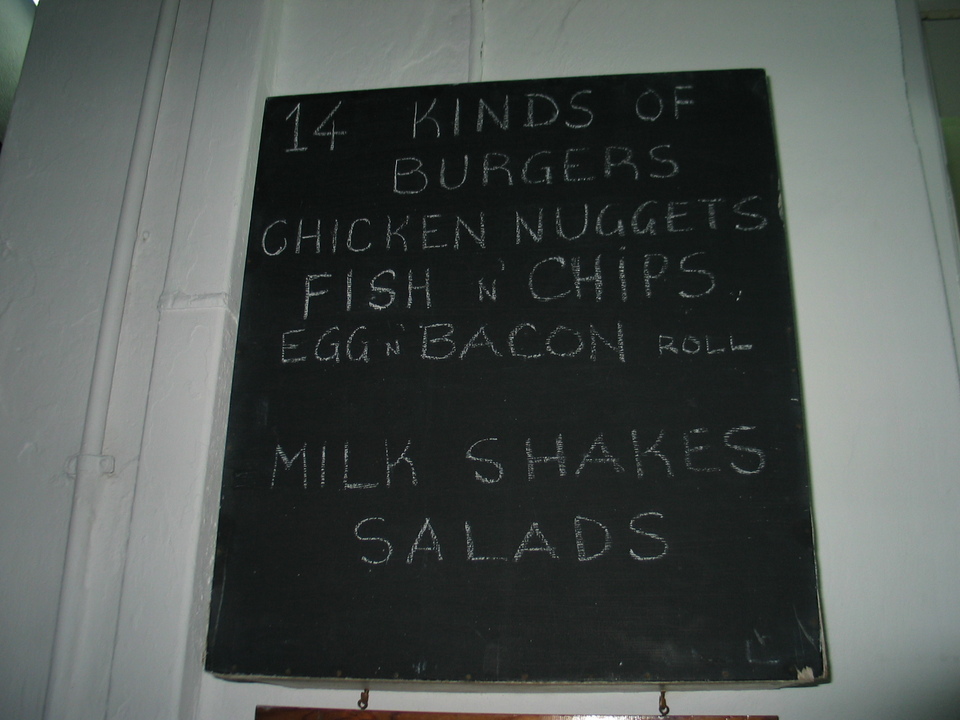 14 KINDS OF
BURGERS
CHICKEN NUGGETS
FISH N' CHIPS.
EGG N' BACON ROLL
MILK SHAKES
SALADS